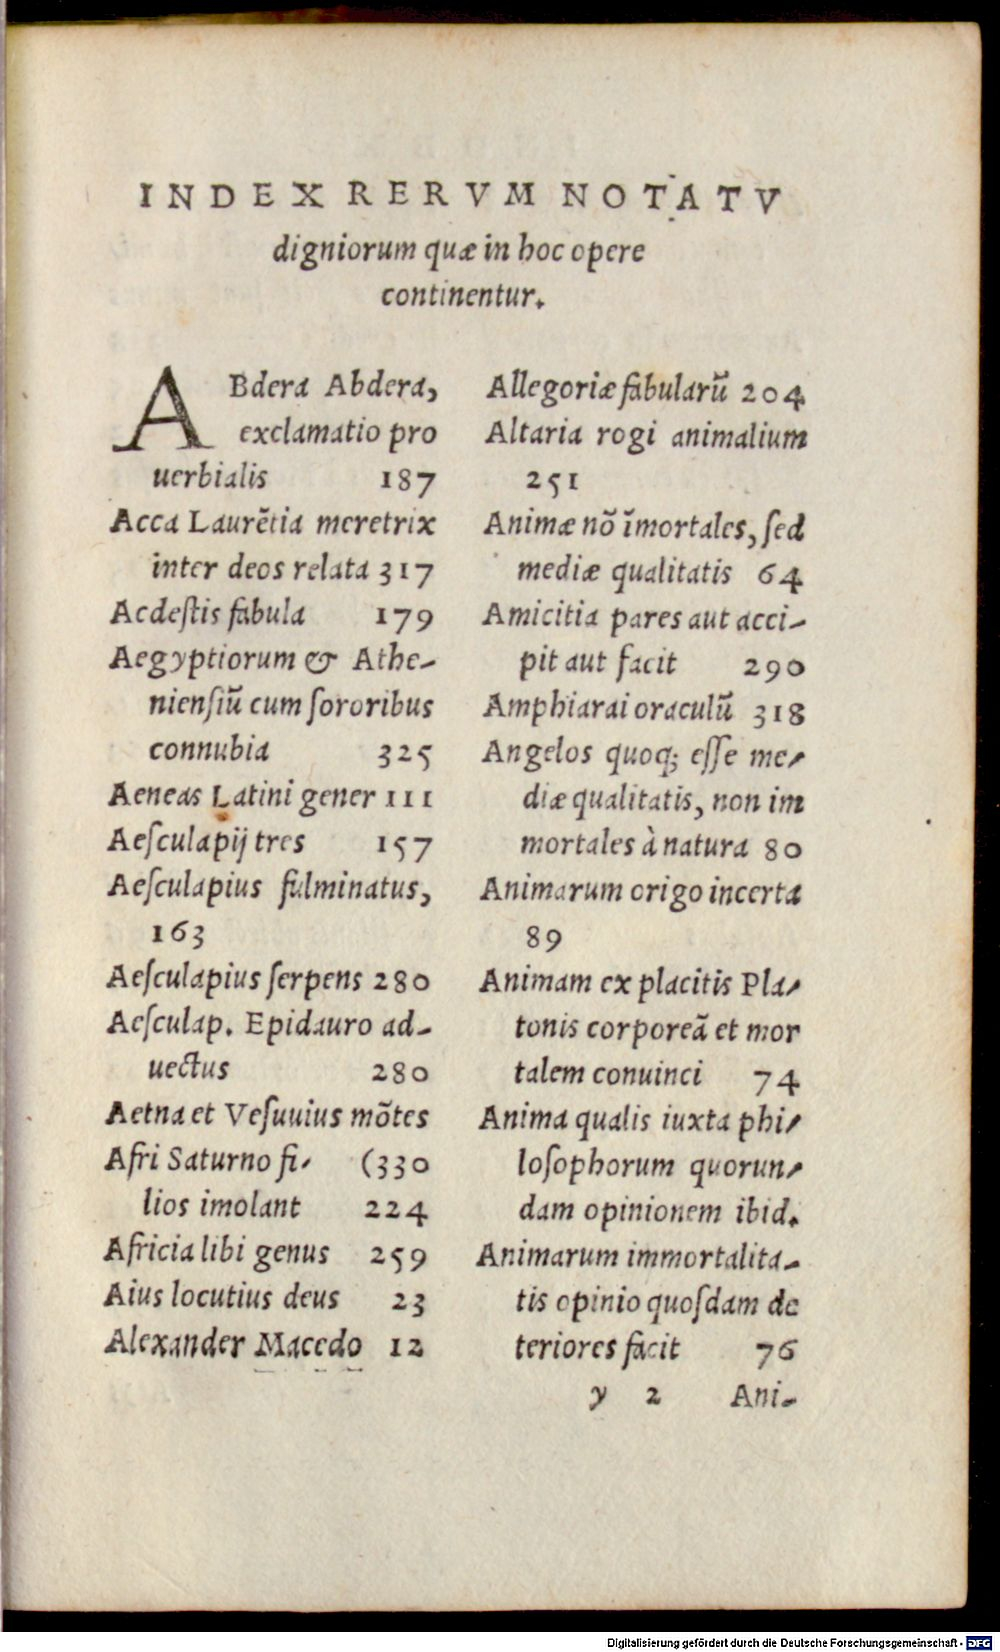 INDEX RERVM NOTATV
digniorum quæ in hoc opere
continentur.
ABdera Abdera,
exclamatio pro
uerbialis 187
Acca Laurẽtia meretrix
inter deos relata 317
Acdeſtis fabula 179
Aegyptiorum & Athe-
nienſiũ cum ſororibus
connubia 325
Aeneas Latini gener 111
Aeſculapij tres 157
Aeſculapius fulminatus,
163
Aeſculapius ſerpens 280
Aeſculap. Epidauro ad-
uectus 280
Aetna et Veſuuius mõtes
Afri Saturno fi- (330
lios imolant 224
Africia libi genus 259
Aius locutius deus 23
Alexander Macedo 12
Allegoriæ fabularũ 204
Altaria rogi animalium
251
Animæ nõ ĩmortales, ſed
mediæ qualitatis 64
Amicitia pares aut acci-
pit aut facit 290
Amphiarai oraculũ 318
Angelos quoq; eſſe me-
diæ qualitatis, non im
mortales à natura 80
Animarum origo incerta
89
Animam ex placitis Pla-
tonis corporeã et mor
talem conuinci 74
Anima qualis iuxta phi-
loſophorum quorun-
dam opinionem ibid.
Animarum immortalita-
tis opinio quoſdam de
teriores facit 76
y 2 Ani-
Digitalisierung gefördert durch die Deutsche Forschungsgemeinschaft - DFG